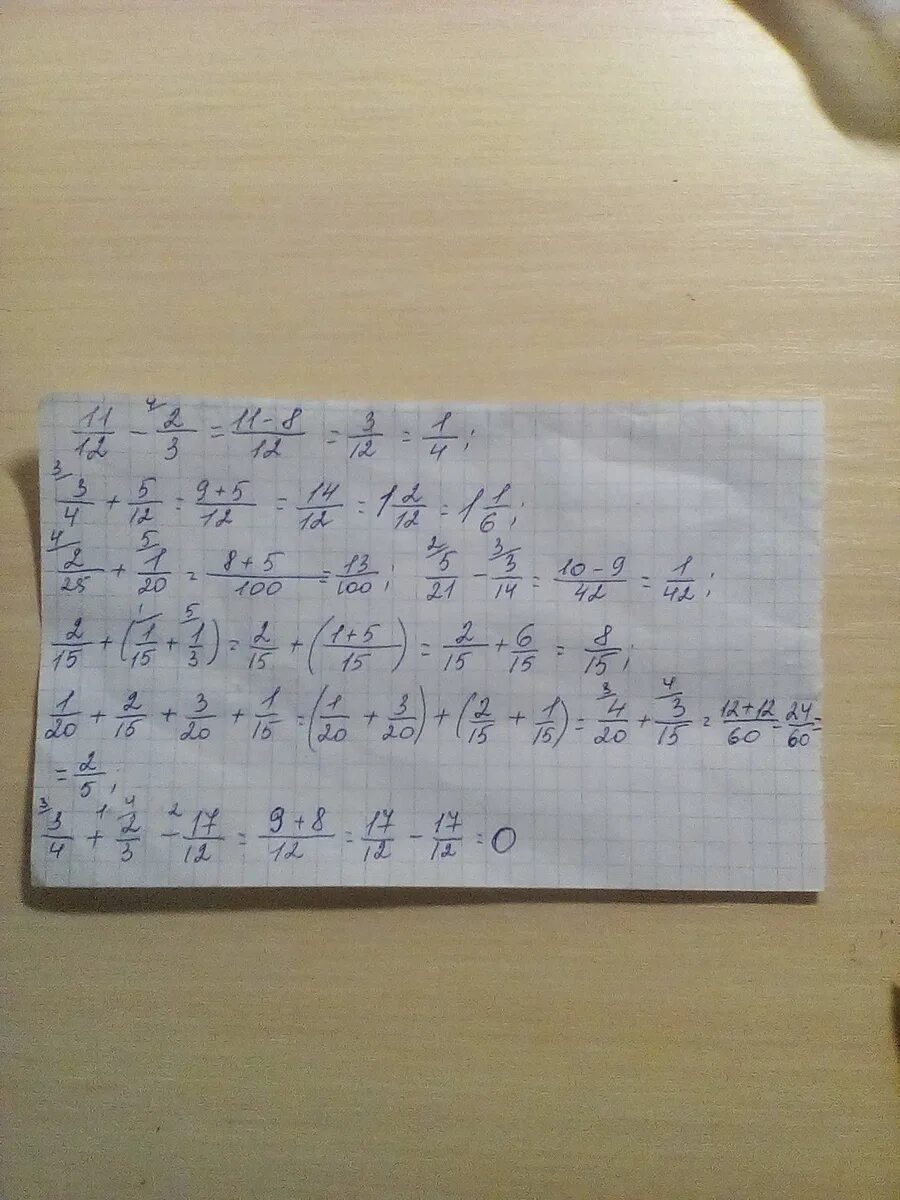 11/12 - 4/ 2/3 = (11-8)/12 = 3/12 = 1/4;
3/ 3/4 + 5/12 = (9+5)/12 = 14/12 = 1 2/12 = 1 1/6;
4/ 2/25 + 5/ 1/20 = (8+5)/100 = 13/100; 2/ 5/21 - 3/ 3/14 = (10-9)/42 = 1/42;
2/15 + (1/ 1/15 + 5/ 1/3) = 2/15 + ((1+5)/15) = 2/15 + 6/15 = 8/15;
1/20 + 2/15 + 3/20 + 1/15 = (1/20 + 3/20) + (2/15 + 1/15) = 3/ 4/20 + 4/ 3/15 = (12+12)/60 = 24/60 =
= 2/5;
3/ 3/4 1 + 4/ 2/3 2 - 17/12 = (9+8)/12 = 17/12 - 17/12 = 0